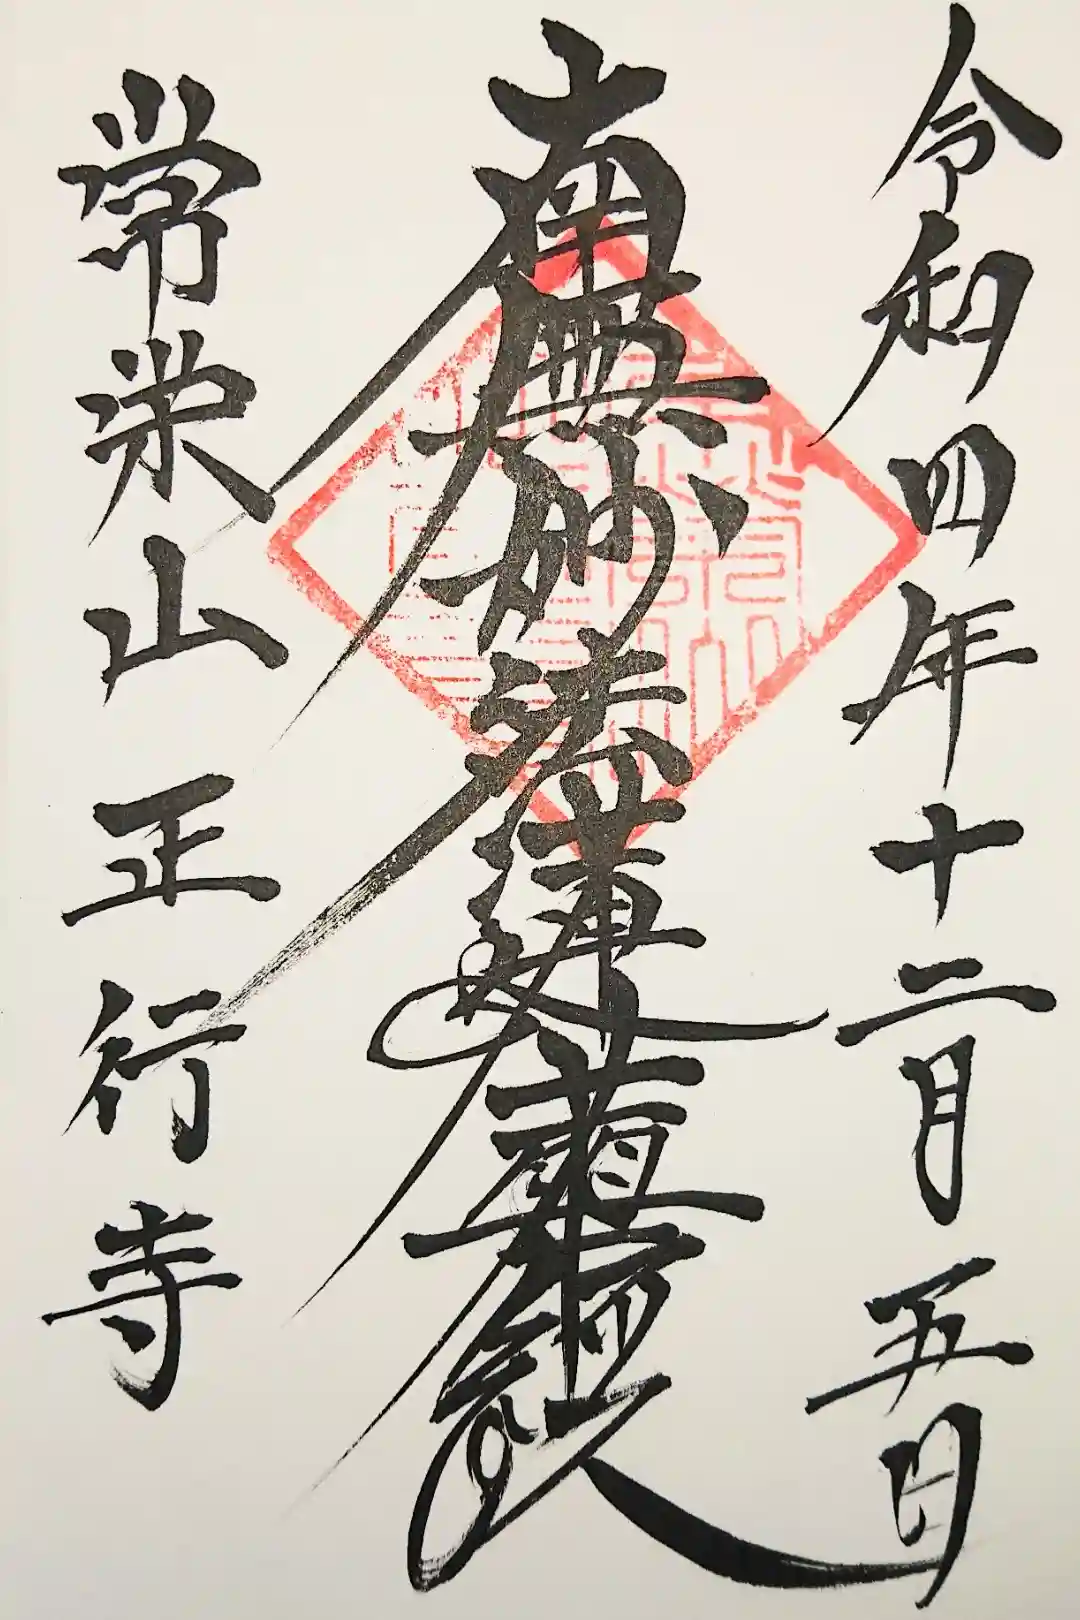 令和四年十二月五日
南無妙法蓮華経
常栄山 正行寺